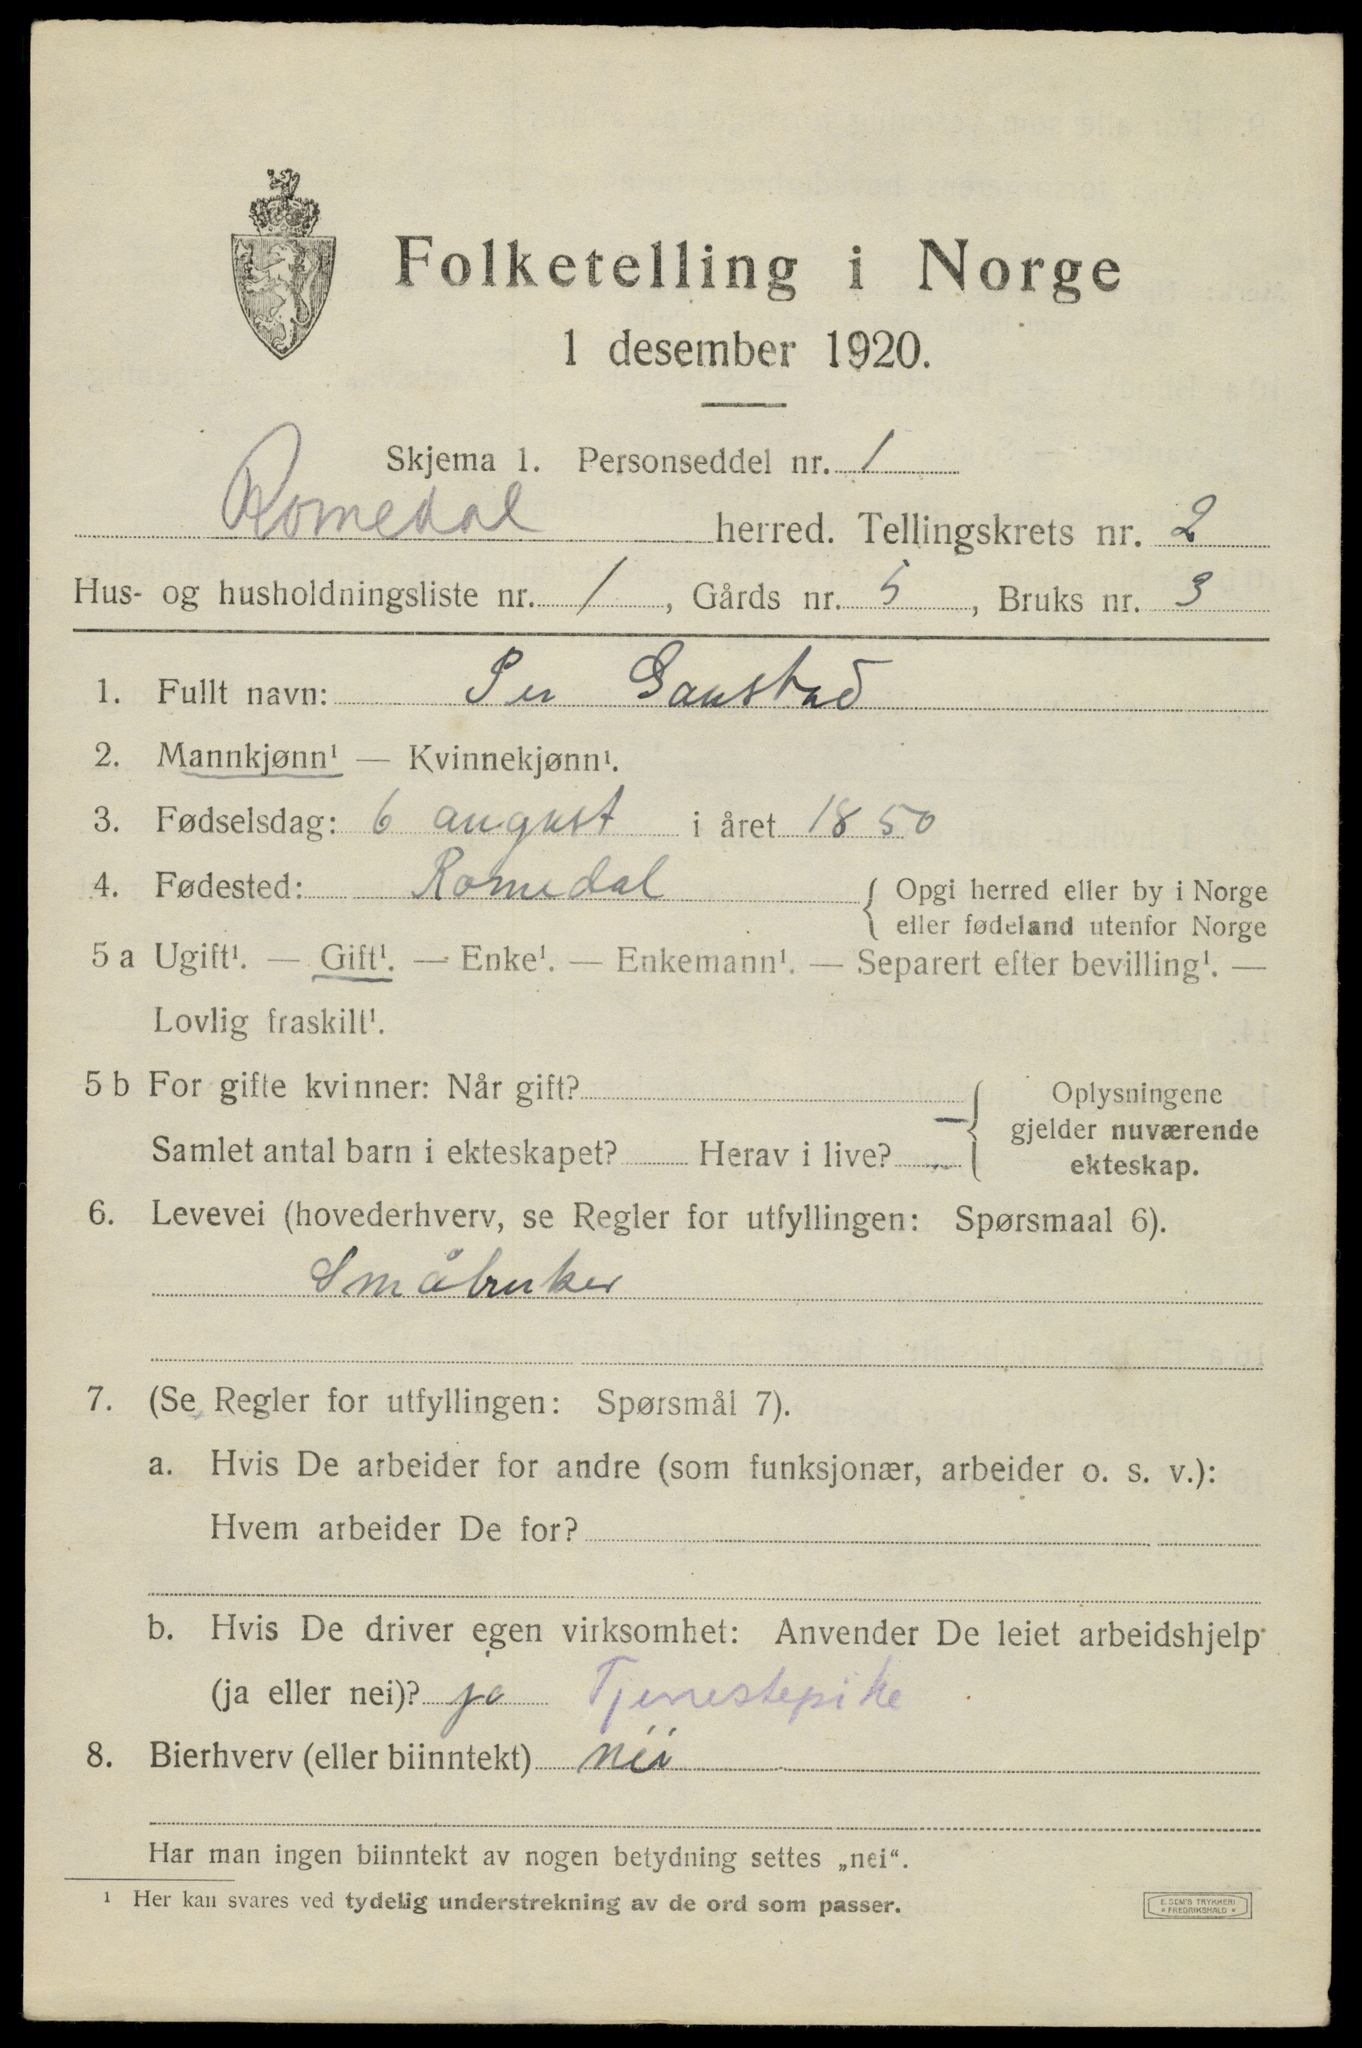 Folketelling i Norge
1 desember 1920.
Skjema 1. Personseddel nr. 1
Romedal herred. Tellingskrets nr. 2
Hus- og husholdningsliste nr. 1, Gårds nr. 5, Bruks nr. 3
1. Fullt navn: Per Gaustad
2. Mannkjønn¹ — Kvinnekjønn¹.
3. Fødselsdag: 6 august i året 1850
4. Fødested: Romedal { Opgi herred eller by i Norge
eller fødeland utenfor Norge
5 a Ugift¹. — Gift¹. — Enke¹. — Enkemann¹. — Separert efter bevilling¹. —
Lovlig fraskilt¹.
5 b For gifte kvinner: Når gift? { Oplysningene
gjelder nuværende
Samlet antal barn i ekteskapet? Herav i live? — ekteskap.
6. Levevei (hovederhverv, se Regler for utfyllingen: Spørsmaal 6).
Småbruker
7. (Se Regler for utfyllingen: Spørsmål 7).
a. Hvis De arbeider for andre (som funksjonær, arbeider o. s. v.):
Hvem arbeider De for?
b. Hvis De driver egen virksomhet: Anvender De leiet arbeidshjelp
(ja eller nei)? ja Tjenestepike
8. Bierhverv (eller biinntekt) nei
Har man ingen biinntekt av nogen betydning settes „nei“.
¹ Her kan svares ved tydelig understrekning av de ord som passer.
E. SEM'S TRYKKERI
* FREDRIKSHALD *